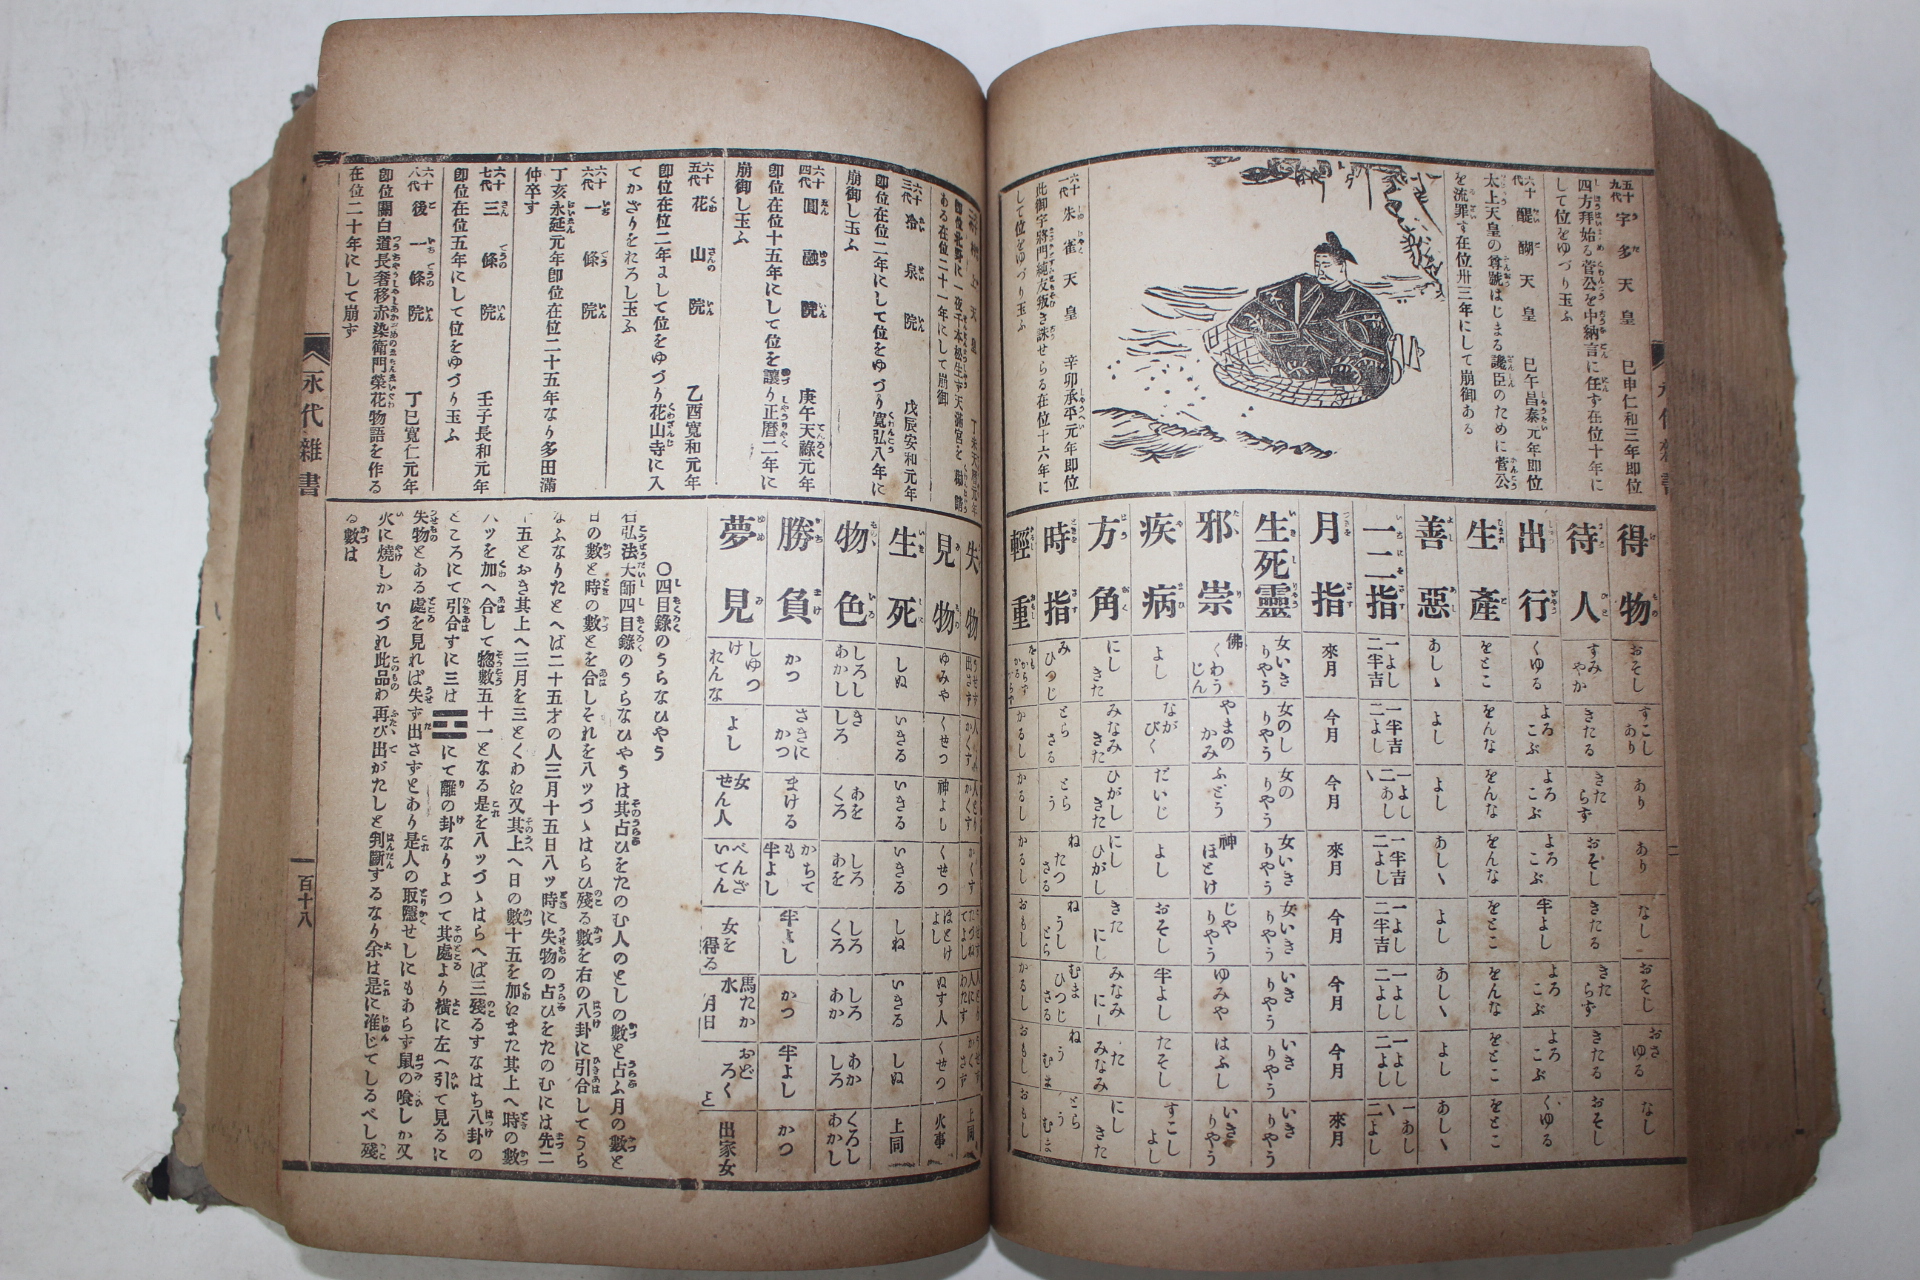 五十九代 宇多天皇 巳申仁和三年即位
四方拜始る菅公を中納言に任す在位十年に
して位をゆづり玉ふ
六十代 醍醐天皇 巳午昌泰元年即位
太上天皇の尊號はじまる讒臣のために菅公
を流罪す在位卅三年にして崩御ある
六十一代 朱雀天皇 辛卯承平元年即位
此御宇將門純友叛き誅せらる在位十六年に
して位をゆづり玉ふ
得物 おそし すこしあり あり あり なし おそし おさゆる なし
待人 すみやか きたる きたらず おそし きたる きたらず きたる おそし
出行 くゆる よろこぶ よろこぶ よろこぶ 半よし よろこぶ よろこぶ くゆる
生產 をとこ をんな をんな をんな をとこ をんな をとこ をとこ
善惡 あしゝ よし よし あし\ よし あし\ よし あし\
一二指 一よし二半吉 一半吉二よし 一よし二あし\ 一半吉二よし 一よし二半吉 一よし二よし 一よし二よし 一あし\二よし
月指 來月 今月 今月 來月 今月 今月 今月 來月
生死靈 女いきりやう 女のしりやう 女のりやう 女いきりやう 女いきりやう いきりやう いきりやう いきりやう
邪祟 佛くわうじん やまのかみ ふどう 神ほとけ じやりやう ゆみや はふし いきりやう
疾病 よし ながびく だいじ よし おそし 半よし たそし すこしよし
方角 にしきた みなみきた ひがしきた にしひがし きたにし みなみに たみなみ にしきた
時指 みひつじ とらさる とらう ねたつさる ねうしとら むまひつじさる ねうむま とらむま
輕重 かるし かるし かるし おもし かるし おもし おもし
ある在位二十一年にして崩御
六十三代 冷泉院 戊辰安和元年
即位在位二年にして位をゆづり寬弘八年に
崩御し玉ふ
六十四代 圓融院 庚午天祿元年
即位在位十五年にして位を讓り正曆二年に
崩御し玉ふ
六十五代 花山院 乙酉寬和元年
即位在位二年まして位をゆづり花山寺に入
てかざりをれろし玉ふ
六十六代 一條院
丁亥永延元年即位在位二十五年なり多田滿
仲卒す
六十七代 三條院 壬子長和元年
即位在位五年にして位をゆづり玉ふ
六十八代 後一條院 丁巳寬仁元年
即位關白道長奢移赤染衛門榮花物語を作る
在位二十年にして崩ず
失物
見物 ゆみや くせつ 神よし くせつ ほとけよし ぬす人 くせつ 火事
生死 しぬ いきる いきる いきる しね いきる しぬ 上同
物色 しろしあかし きしろ あをくろ しろあを しろくろ しろあか あかしろ くろしあかし
勝負 かつ さきにかつ まける かちても半よし 半よし かつ 半よし かつ
夢見 しゆつけれんな よし 女せん人 べんざいてん 女を得る 馬たか水月日 おどろくと 出家女
〇四目錄のうらなひやう
右弘法大師四目錄のうらなひやうは其占ひをたのむ人のとしの數と占ふ月の數と
日の數と時の數とを合しそれを八ッづゝはらひ殘る數を右の八卦に引合してうら
なふなりたとへば二十五才の人三月十五日八ッ時に失物の占ひをたのむには先二
十五とおき其上へ三月を三とくわね又其上へ日の數十五を加ねまた其上へ時の數
八ッを加へ合して惣數五十一となる是を八ッづゝはらへば三殘るすなはち八卦の
ところにて引合すに三は☲にて離の卦なりよつて其處より橫に左へ引て見るに
失物とある處を見れば失す出さずとあり是人の取隱せしにもあらず鼠の喰しか又
火に燒しかいづれ此品わ再び出がたしと判斷するなり余は是に准じてしるべし殘
る數は
永代雜書
百十八